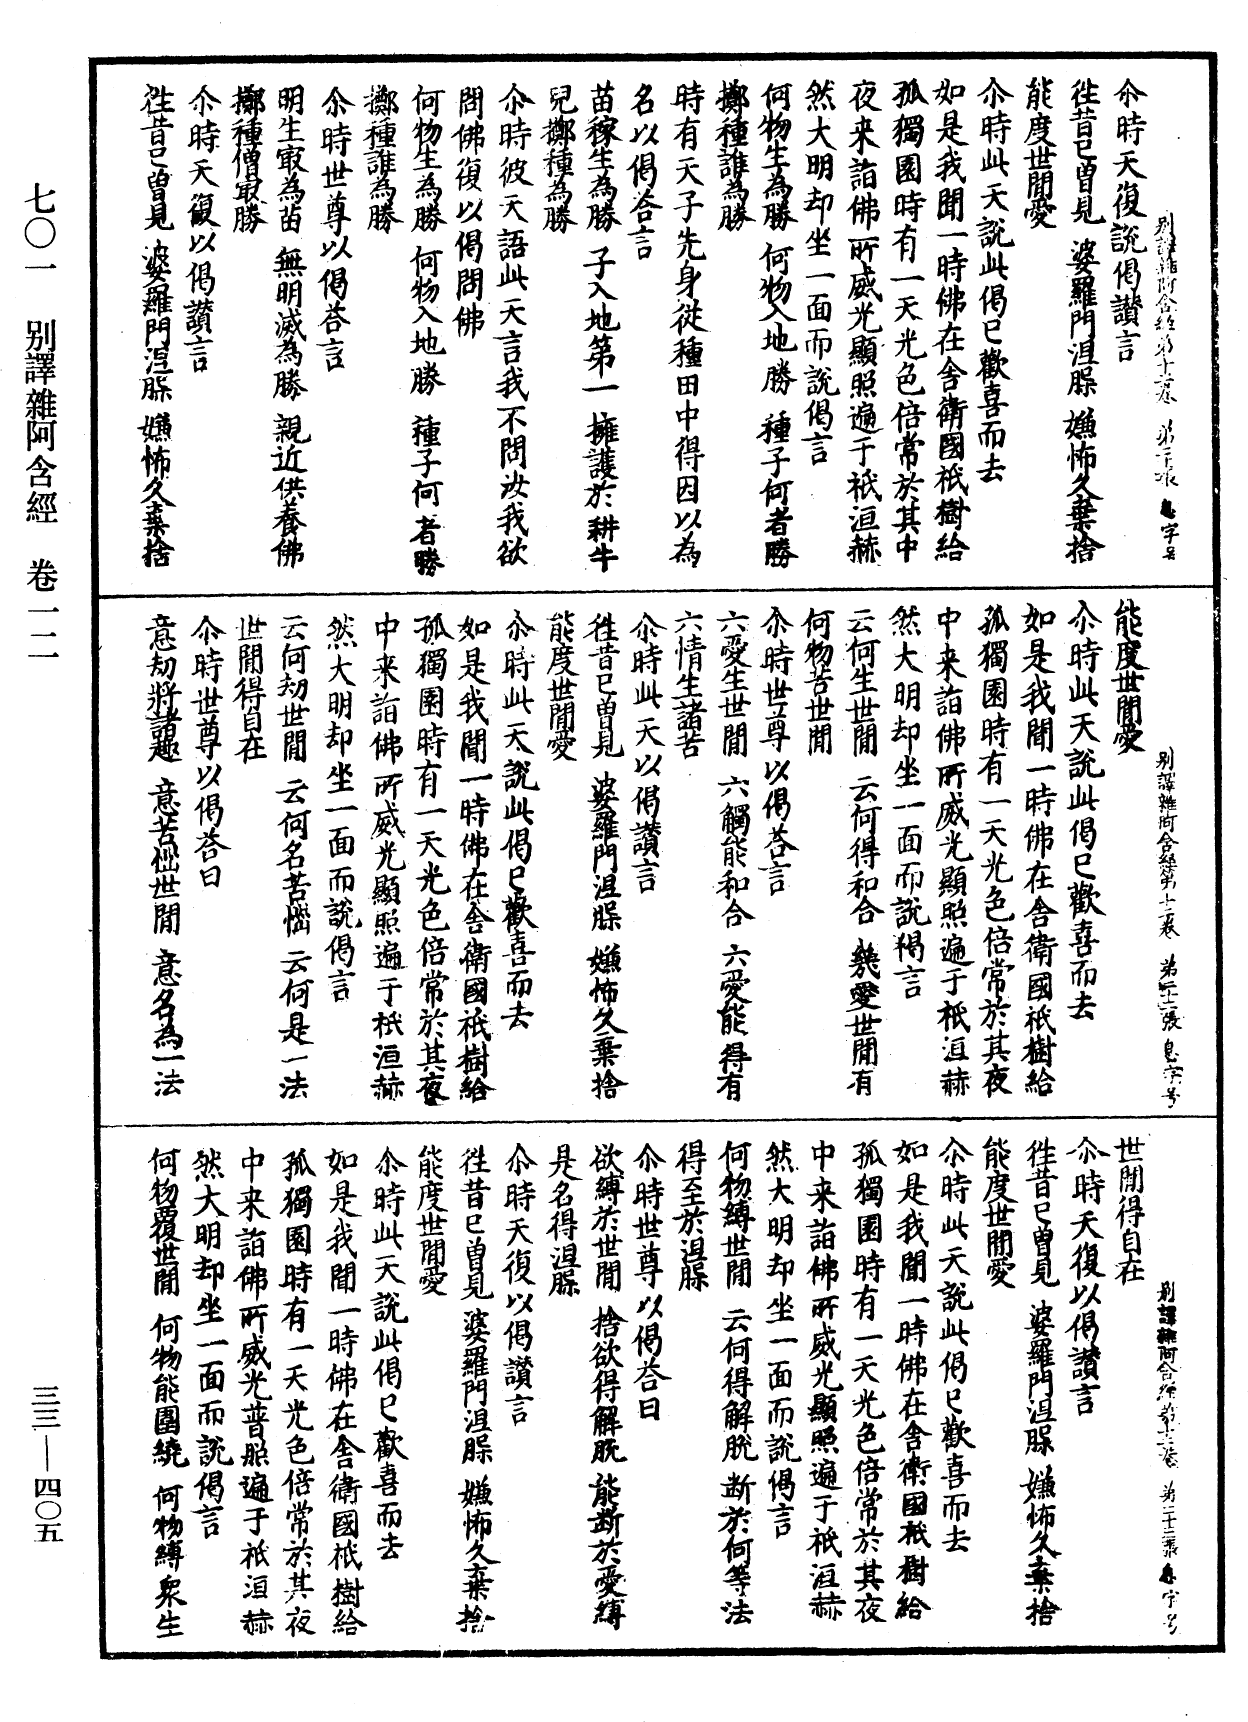 七〇一　别譯雜阿含經　卷一二
三三—四〇五
别譯雜阿含經第十二卷　第
尒時天復說偈讃言
徃昔已曾見　婆羅門涅槃　嫌怖久棄捨
能度世間愛
尒時此天說此偈已歡喜而去
如是我聞一時佛在舎衛國祇樹給
孤獨園時有一天光色倍常於其中
夜来詣佛所威光顯照遍于祇洹赫
然大明却坐一面而說偈言
何物生為勝　何物入地勝　種子何者勝
擲種誰為勝
時有天子先身從種田中得因以為
名以偈荅言
苗稼生為勝　子入地第一　擁護於耕牛
兒擲種為勝
尒時彼天語此天言我不問汝我欲
問佛復以偈問佛
何物生為勝　何物入地勝　種子何者勝
擲種誰為勝
尒時世尊以偈荅言
明生㝡為苗　無明滅為勝　親近供養佛
擲種僧㝡勝
尒時天復以偈讃言
徃昔已曾見　婆羅門涅槃　嫌怖久棄捨
别譯雜阿含經第十二卷　第二十二張　息字号
能度世間愛
尒時此天說此偈已歡喜而去
如是我聞一時佛在舎衛國祇樹給
孤獨園時有一天光色倍常於其夜
中来詣佛所威光顯照遍于祇洹赫
然大明却坐一面而說偈言
云何生世間　云何得和合　幾愛世間有
何物苦世間
尒時世尊以偈荅言
六愛生世間　六觸能和合　六愛能得有
六情生諸苦
尒時此天以偈讃言
徃昔已曾見　婆羅門涅槃　嫌怖久棄捨
能度世間愛
尒時此天說此偈已歡喜而去
如是我聞一時佛在舎衛國祇樹給
孤獨園時有一天光色倍常於其夜
中来詣佛所威光顯照遍于祇洹赫
然大明却坐一面而說偈言
云何劫世間　云何名苦惱　云何是一法
世間得自在
尒時世尊以偈荅曰
意劫將諸趣　意苦惱世間　意名為一法
别譯雜阿含經第十二卷　第二十三張　息字号
世間得自在
尒時天復以偈讃言
徃昔已曾見　婆羅門涅槃　嫌怖久棄捨
能度世間愛
尒時此天說此偈已歡喜而去
如是我聞一時佛在舎衛國祇樹給
孤獨園時有一天光色倍常於其夜
中来詣佛所威光顯照遍于祇洹赫
然大明却坐一面而說偈言
何物縛世間　云何得解脫　断於何等法
得至於涅槃
尒時世尊以偈荅曰
欲縛於世間　捨欲得解脫　能断於愛縛
是名得涅槃
尒時天復以偈讃言
徃昔已曾見　婆羅門涅槃　嫌怖久棄捨
能度世間愛
尒時此天說此偈已歡喜而去
如是我聞一時佛在舎衛國祇樹給
孤獨園時有一天光色倍常於其夜
中来詣佛所威光普照遍于祇洹赫
然大明却坐一面而說偈言
何物覆世間　何物能圍繞　何物縛衆生